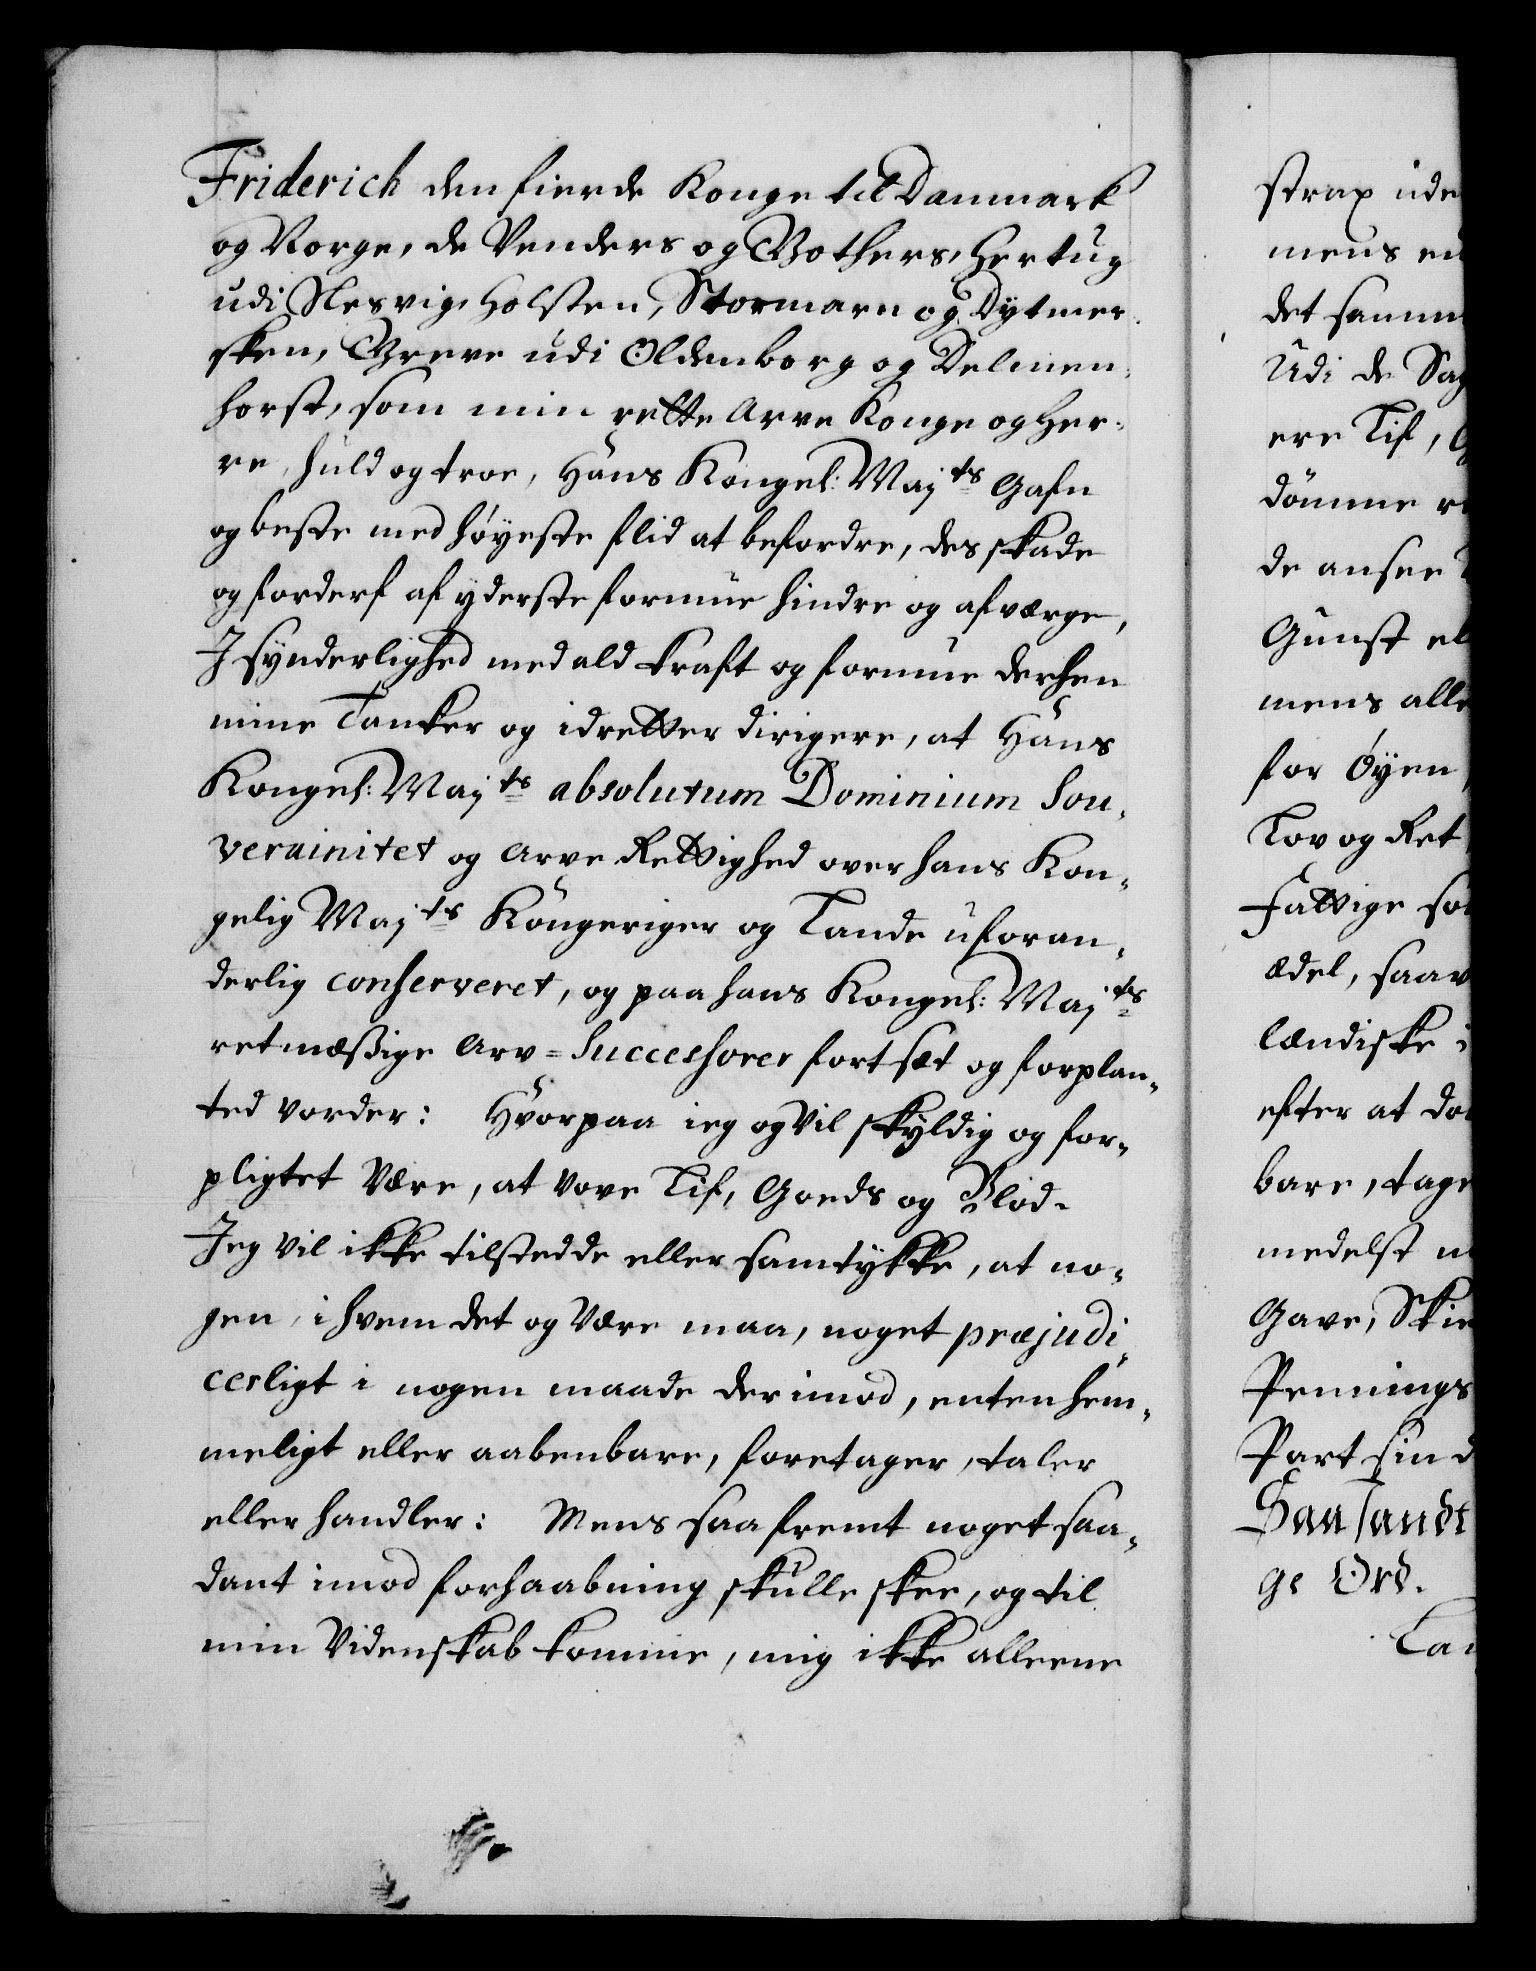 Friderich den fierde Konge til Danmark
og Norge, de Venders og Gothers, Hertug
udi Slesvig, Holsten, Stormarn og Dytmer-
sken, Greve udi Oldenborg og Delmen-
horst, som min rette Arve Konge og Her-
re, huld og troe, Hans Kongel: Maj:ts Gafn
og beste med høyeste flid at befordre, des skade
og forderf af yderste formue hindre og afværge,
J synderlighed med ald kraft og formue derhen
mine Tanker og idretter dirigere, at Hans
Kongel: Maj:ts absolutum Dominium Sou-
verainitet og Arve Rettighed over hans Kon-
gelig Maj:ts Kongeriger og Lande uforan-
derlig conserveret, og paa hans Kongel: Maj:ts
retmæßige Arv-Successorer fortsæt og forplan-
ted vorder: Hvorpaa ieg og vil skyldig og for-
pligtet være, at vove Lif, Goeds og Blod.
Jeg vil ikke tilstedde eller samtykke, at no-
gen, i hvem det og være maa, noget præjudi-
cerligt i nogen maade derimod, enten hem-
meligt eller aabenbare, foretager, taler
eller handler: Mens saafremt noget saa-
dant imod forhaabning skulle skee, og til
min Videnskab komme, mig ikke alleene
strax ude
mens en
det samm
Udi de Sag
ere Lif,
dömme
de ansee
Gunst el
mens alle
for Øyen
Lov og Ret
Fattige so
ædel, saav
lændiske i
efter at do
bare, tage
medelst
Gave, Skie
Pennings
Part sin d
Saa sandt
ge Ord.